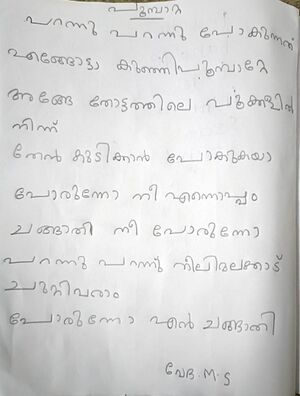 പൂമ്പാറ്റ
പറന്നു പറന്നു പോകുന്നത്
എങ്ങോട്ടാ കുഞ്ഞിപൂമ്പാറ്റേ
അങ്ങേ തോട്ടത്തിലെ പൂക്കളിൽ
നിന്ന്
തേൻ കുടിക്കാൻ പോകുകയാ
പോരുന്നോ നീ എന്നൊപ്പം
ചങ്ങാതി നീ പോരുന്നോ
പറന്നു പറന്ന് നീലിമലക്കാട്
ചുറ്റിവരാം
പോരുന്നോ എൻ ചങ്ങാതി
വേദ.M.S